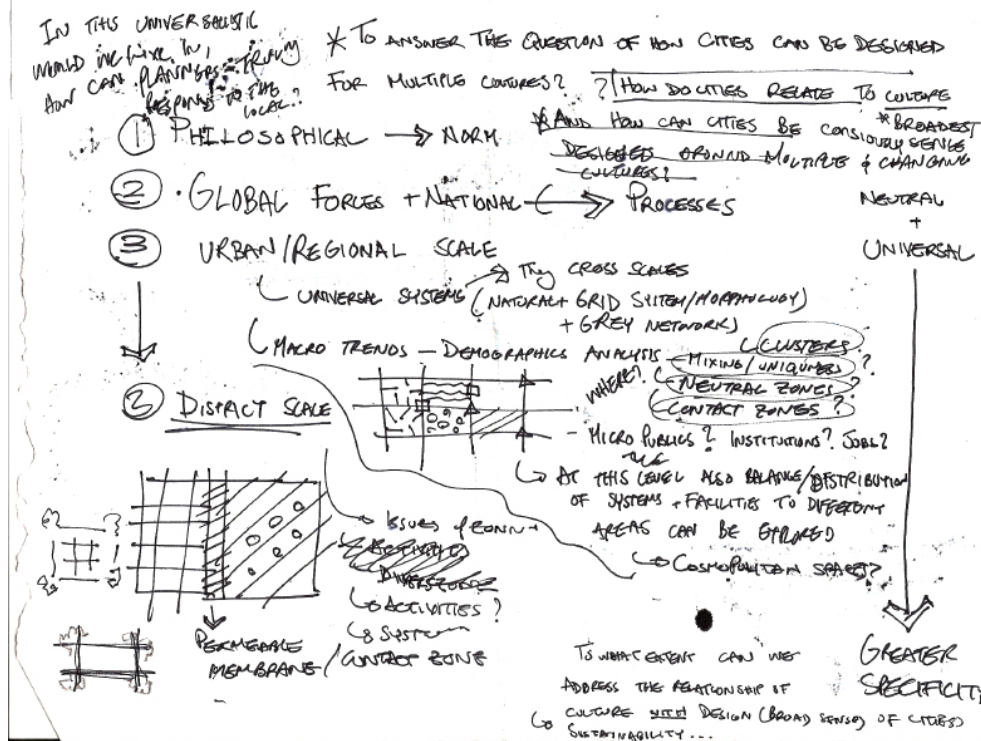 IN THIS UNIVERSALISTIC
WORLD WE LIVE IN,
HOW CAN PLANNERS TRULY
RESPOND TO THE
LOCAL?
* TO ANSWER THE QUESTION OF HOW CITIES CAN BE DESIGNED
FOR MULTIPLE CULTURES? ? HOW DO CITIES RELATE TO CULTURE
* BROADEST
SENSE
* AND HOW CAN CITIES BE CONSIOUSLY
DESIGNED AROUND MULTIPLE & CHANGING
CULTURES?
① PHILOSOPHICAL → NORM
② · GLOBAL FORCES + NATIONAL → PROCESSES
NEUTRAL
+
UNIVERSAL
③ URBAN/REGIONAL SCALE
UNIVERSAL SYSTEMS → THEY CROSS SCALES
(NATURAL + GRID SYSTEM/MORPHOLOGY)
+ GREY NETWORK)
MACRO TRENDS — DEMOGRAPHICS ANALYSIS
WHERE?
CLUSTERS
MIXING/UNIQUENESS ?
NEUTRAL ZONES ?
CONTACT ZONES ?
- MICRO PUBLICS? INSTITUTIONS? JOBS?
AT THIS LEVEL ALSO BALANCE/DISTRIBUTION
OF SYSTEMS + FACILITIES TO DIFFERENT
AREAS CAN BE EXPLORED
COSMOPOLITAN SPACES?
③ DISTRICT SCALE
ISSUES OF
ACTIVITIES ?
SYSTEM
PERMEABLE
MEMBRANE/CONTACT ZONE
GREATER
SPECIFICITY
TO WHAT EXTENT CAN WE
ADDRESS THE RELATIONSHIP OF
CULTURE WITH DESIGN (BROAD SENSE) OF CITIES)
SUSTAINABILITY...